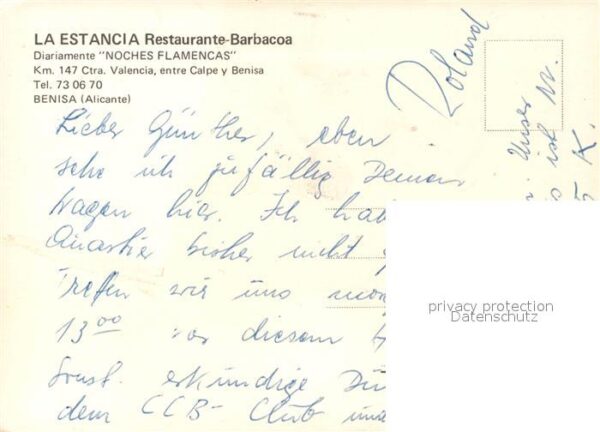 LA ESTANCIA Restaurante-Barbacoa
Diariamente "NOCHES FLAMENCAS"
Km. 147 Ctra. Valencia, entre Calpe y Benisa
Tel. 73 06 70
BENISA (Alicante)
Lieber Günther, eben
sehe ich zufällig Deinen
Wagen hier. Ich hab
Quartier bisher nicht
Treffen wir uns mor
13 00 vor diesem
Sonst erkundige Di
dem CCB-Club und
Roland
Unser
ist W.
K.
privacy protection
Datenschutz